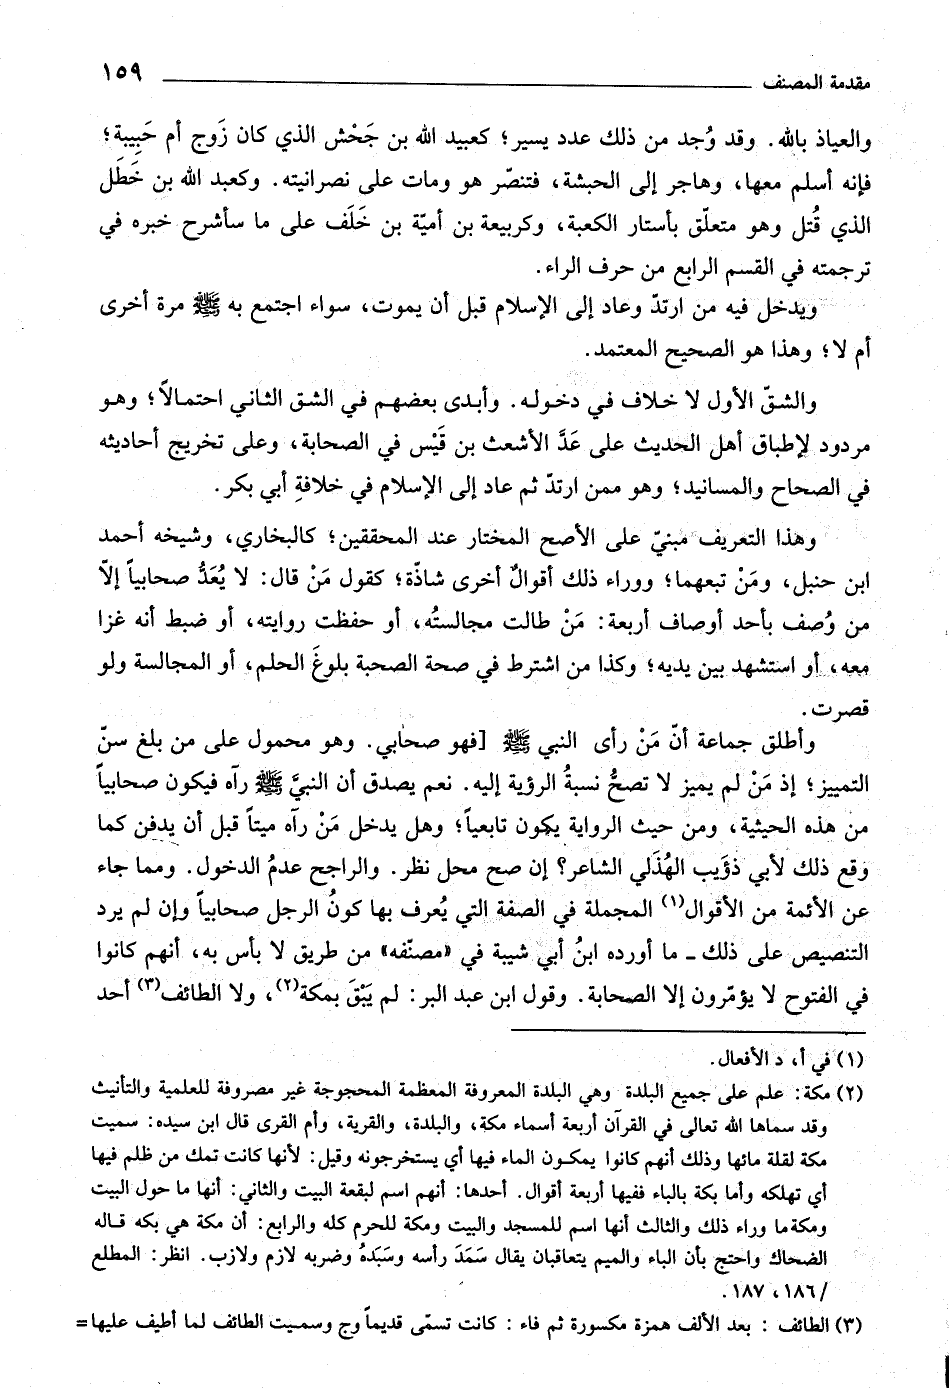 مقدمة المصنف ١٥٩
والعياذ بالله. وقد وُجد من ذلك عدد يسير؛ كعبيد الله بن جَحْش الذي كان زَوج أم حَبِيبة؛
فإنه أسلم معها، وهاجر إلى الحبشة، فتنصّر هو ومات على نصرانيته. وكعبد الله بن خَطَل
الذي قُتل وهو متعلّق بأستار الكعبة، وكربيعة بن أميّة بن خَلَف على ما سأشرح خبره في
ترجمته في القسم الرابع من حرف الراء.
ويدخل فيه من ارتدّ وعاد إلى الإسلام قبل أن يموت، سواء اجتمع به ﷺ مرة أخرى
أم لا؛ وهذا هو الصحيح المعتمد.
والشقّ الأول لا خلاف في دخوله. وأبدى بعضهم في الشق الثاني احتمالاً؛ وهو
مردود لإطباق أهل الحديث على عَدَّ الأشعث بن قَيْس في الصحابة، وعلى تخريج أحاديثه
في الصحاح والمسانيد؛ وهو ممن ارتدّ ثم عاد إلى الإسلام في خلافةِ أبي بكر.
وهذا التعريف مبنيّ على الأصح المختار عند المحققين؛ كالبخاري، وشيخه أحمد
ابن حنبل، ومَنْ تبعهما؛ ووراء ذلك أقوالٌ أخرى شاذّة؛ كقول مَنْ قال: لا يُعَدُّ صحابياً إلاّ
من وُصف بأحد أوصاف أربعة: مَنْ طالت مجالستُه، أو حفظت روايته، أو ضبط أنه غزا
معه، أو استشهد بين يديه؛ وكذا من اشترط في صحة الصحبة بلوغَ الحلم، أو المجالسة ولو
قصرت.
وأطلق جماعة أنّ مَنْ رأى النبي ﷺ [فهو صحابي. وهو محمول على من بلغ سنّ
التمييز؛ إذ مَنْ لم يميز لا تصحُّ نسبةُ الرؤية إليه. نعم يصدق أن النبيَّ ﷺ رآه فيكون صحابياً
من هذه الحيثية، ومن حيث الرواية يكون تابعياً؛ وهل يدخل مَنْ رآه ميتاً قبل أن يدفن كما
وقع ذلك لأبي ذؤَيب الهُذَلي الشاعر؟ إن صح محل نظر. والراجح عدمُ الدخول. ومما جاء
عن الأئمة من الأقوال(١) المجملة في الصفة التي يُعرف بها كونُ الرجل صحابياً وإن لم يرد
التنصيص على ذلك ـ ما أورده ابنُ أبي شيبة في «مصنّفه» من طريق لا بأس به، أنهم كانوا
في الفتوح لا يؤمّرون إلا الصحابة. وقول ابن عبد البر: لم يَبْقَ بمكة(٢)، ولا الطائف(٣) أحد
(١) في أ، د الأفعال.
(٢) مكة: علم على جميع البلدة وهي البلدة المعروفة المعظمة المحجوجة غير مصروفة للعلمية والتأنيث
وقد سماها الله تعالى في القرآن أربعة أسماء مكة، والبلدة، والقرية، وأم القرى قال ابن سيده: سميت
مكة لقلة مائها وذلك أنهم كانوا يمكون الماء فيها أي يستخرجونه وقيل: لأنها كانت تمك من ظلم فيها
أي تهلكه وأما بكة بالباء ففيها أربعة أقوال. أحدها: أنهم اسم لبقعة البيت والثاني: أنها ما حول البيت
ومكة ما وراء ذلك والثالث أنها اسم للمسجد والبيت ومكة للحرم كله والرابع: أن مكة هي بكه قاله
الضحاك واحتج بأن الباء والميم يتعاقبان يقال سَمَدَ رأسه وسَبَدهُ وضربه لازم ولازب. انظر: المطلع
/١٨٦، ١٨٧.
(٣) الطائف : بعد الألف همزة مكسورة ثم فاء : كانت تسمّى قديماً وج وسميت الطائف لما أطيف عليها=